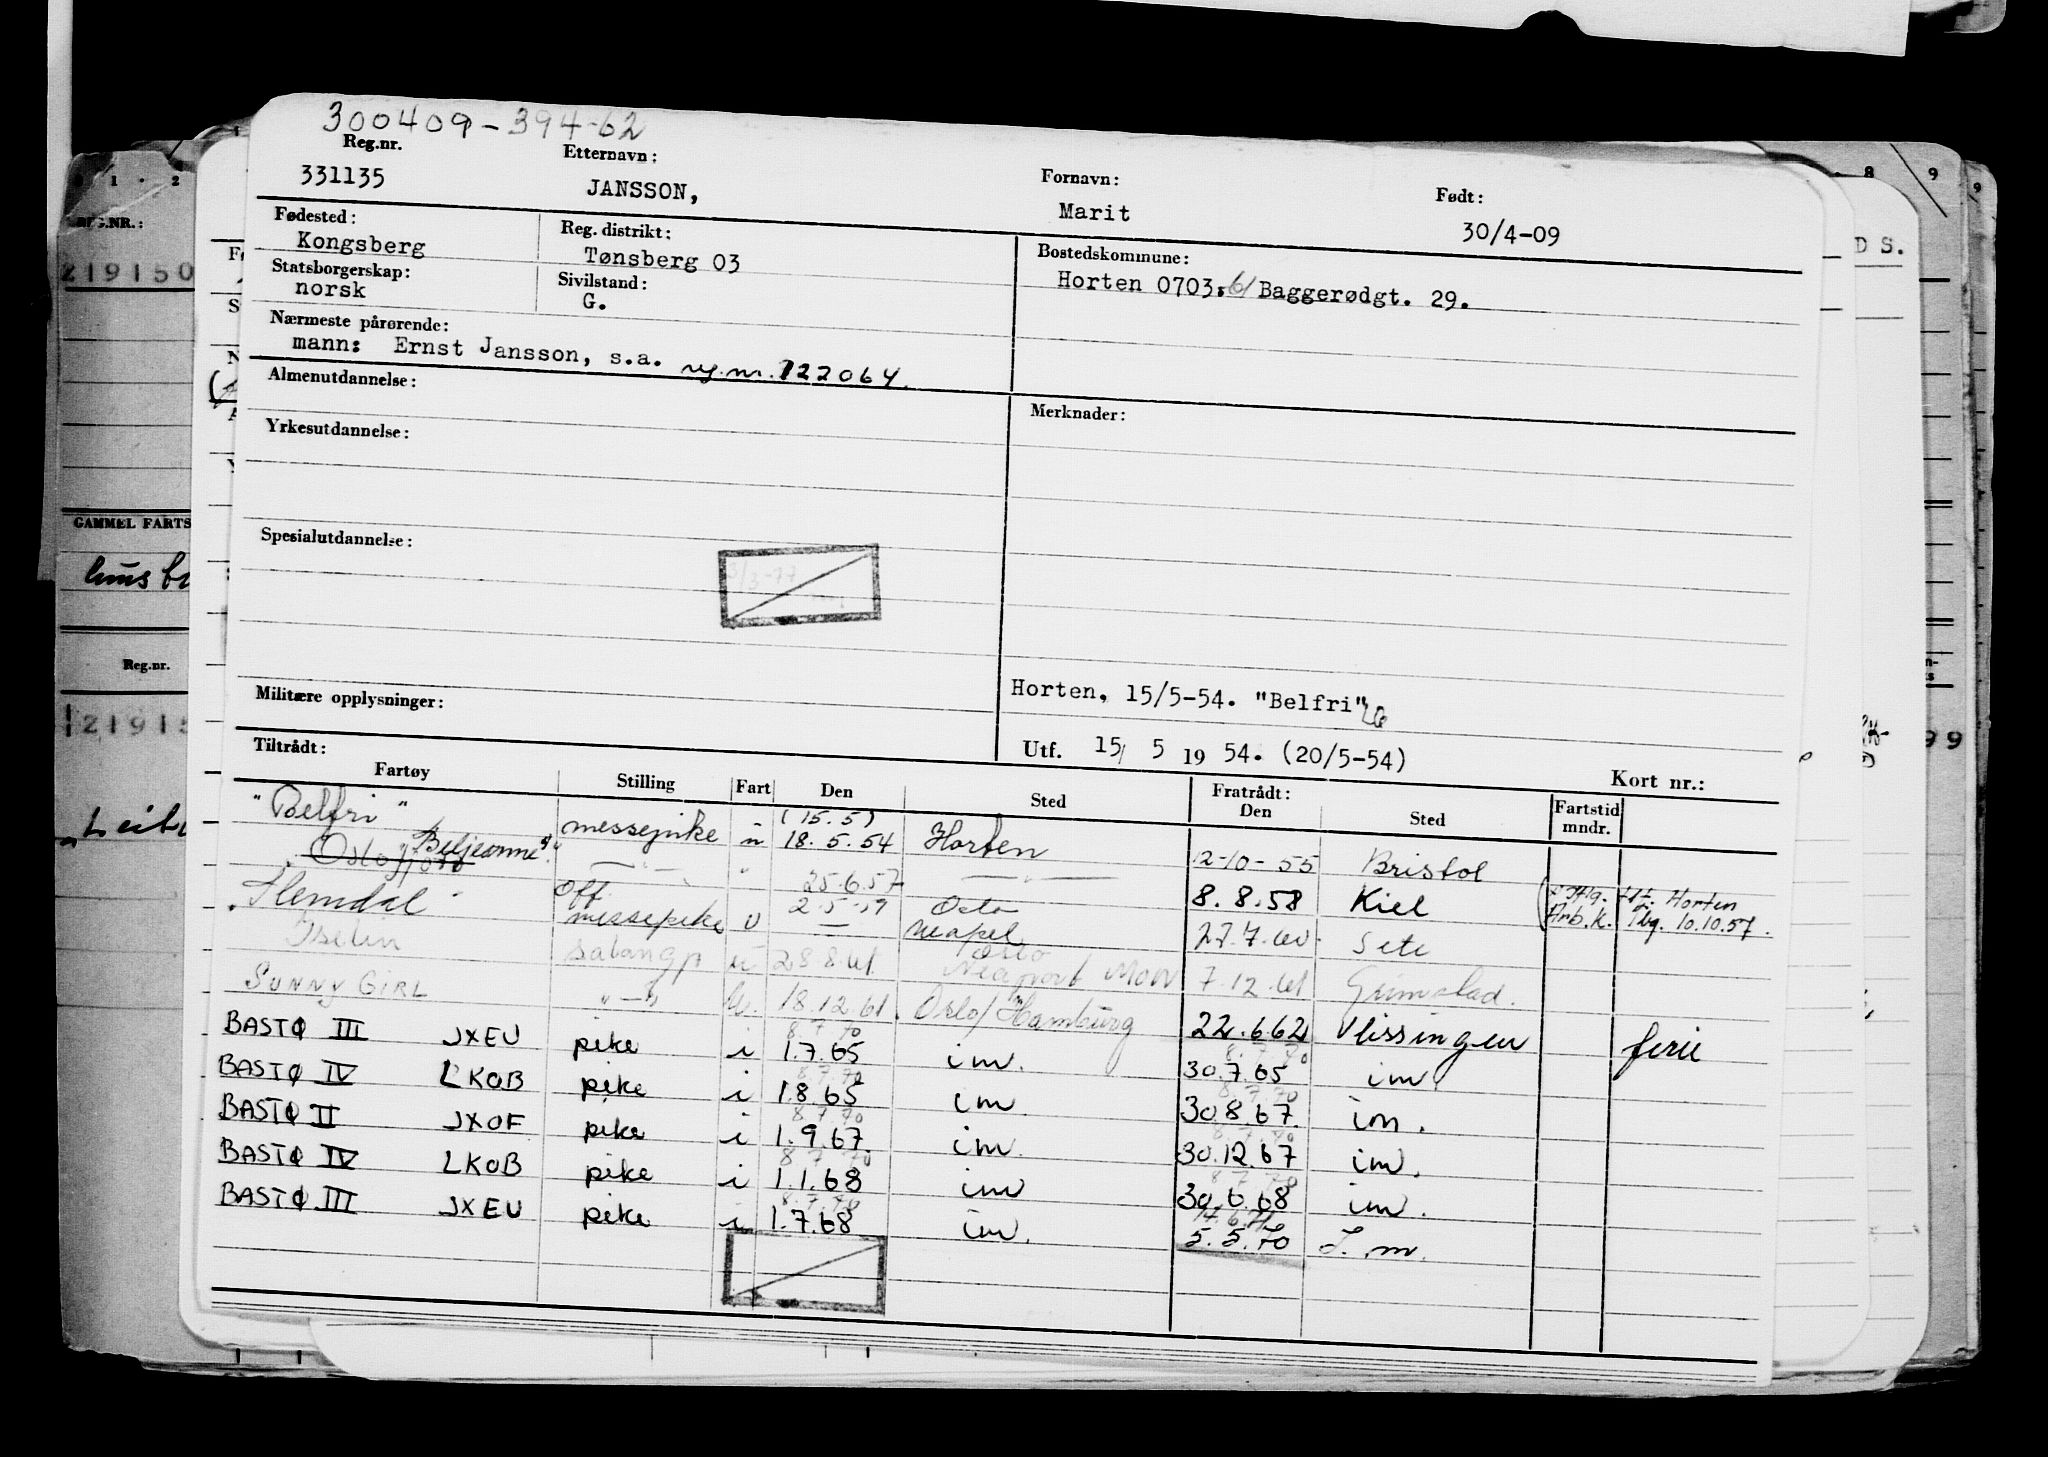 300409-394-62
Reg.nr. Etternavn: Fornavn: Født:
331135 JANSSON, Marit 30/4-09
Fødested: Reg. distrikt: Bostedskommune:
Kongsberg Tønsberg 03 Horten 0703, Baggerødgt. 29.
Statsborgerskap: Sivilstand:
norsk G.
Nærmeste pårørende:
mann: Ernst Jansson, s.a. reg.nr. 122064.
Almenutdannelse: Merknader:
Yrkesutdannelse:
Spesialutdannelse:
3/3-77
Militære opplysninger: Horten, 15/5-54. "Belfri"
Utf. 15/ 5 19 54. (20/5-54)
Tiltrådt: Fratrådt: Kort nr.:
Fartøy Stilling Fart Den Sted Den Sted Fartstid mndr.
"Belfri" messepike u (15.5) 18.5.54 Horten 12-10-55 Bristol
"Oslofjord" "Beljeanne" " 25.6.57 8.8.58 Kiel Horten
Arb.k. 10.10.57.
"Hemdal" off. messepike u 2.5.59 Oslo Neapel 27.7.60 Sete
Iselin salongp u 28.8.61 Oslo Newport Mon 7.12.61 Grimstad.
SUNNY GIRL " - " u. 18.12.61. Oslo/Hamburg 22.6.62 Vlissingen ferie
BASTØ III JXEU pike i 8.7.70 1.7.65 im. 8.7.70 30.7.65 im.
BASTØ IV LKOB pike i 8.7.70 1.8.65 im 8.7.70 30.8.67. im.
BASTØ II JXOF pike i 8.7.70 1.9.67. im. 8.7.70 30.12.67 im.
BASTØ IV LKOB pike i 8.7.70 1.1.68 im 8.7.70 30.6.68 im.
BASTØ III JXEU pike i 8.7.70 1.7.68 im. 5.5.70 I.m.
1 2
REG.NR.:
219150
GAMMEL FARTS
Reg.nr.
21915
8 9 9
D S.
99